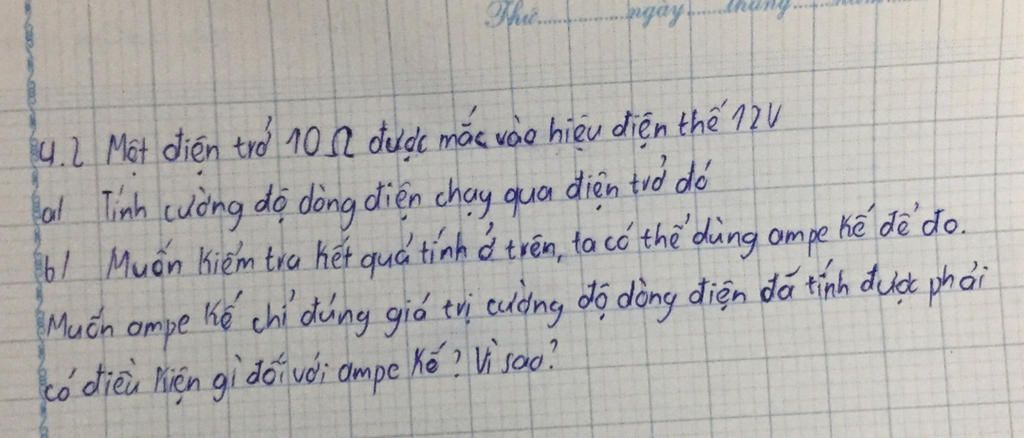 Thứ............ngày......tháng......năm
4.2 Một điện trở 10Ω được mắc vào hiệu điện thế 12V
a/ Tính cường độ dòng điện chạy qua điện trở đó
b/ Muốn kiểm tra kết quả tính ở trên, ta có thể dùng ampe kế để đo.
Muốn ampe kế chỉ đúng giá trị cường độ dòng điện đã tính được phải
có điều kiện gì đối với ampe kế? Vì sao?